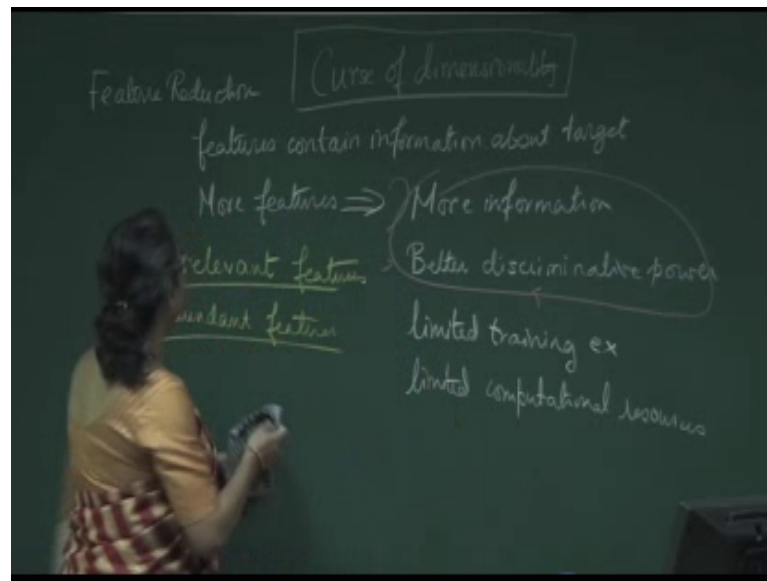 Curse of dimensionality
Feature Reduction
features contain information about target
More features ⇒ More information
relevant features Better discriminative power
undant features limited training ex
limited computational resources